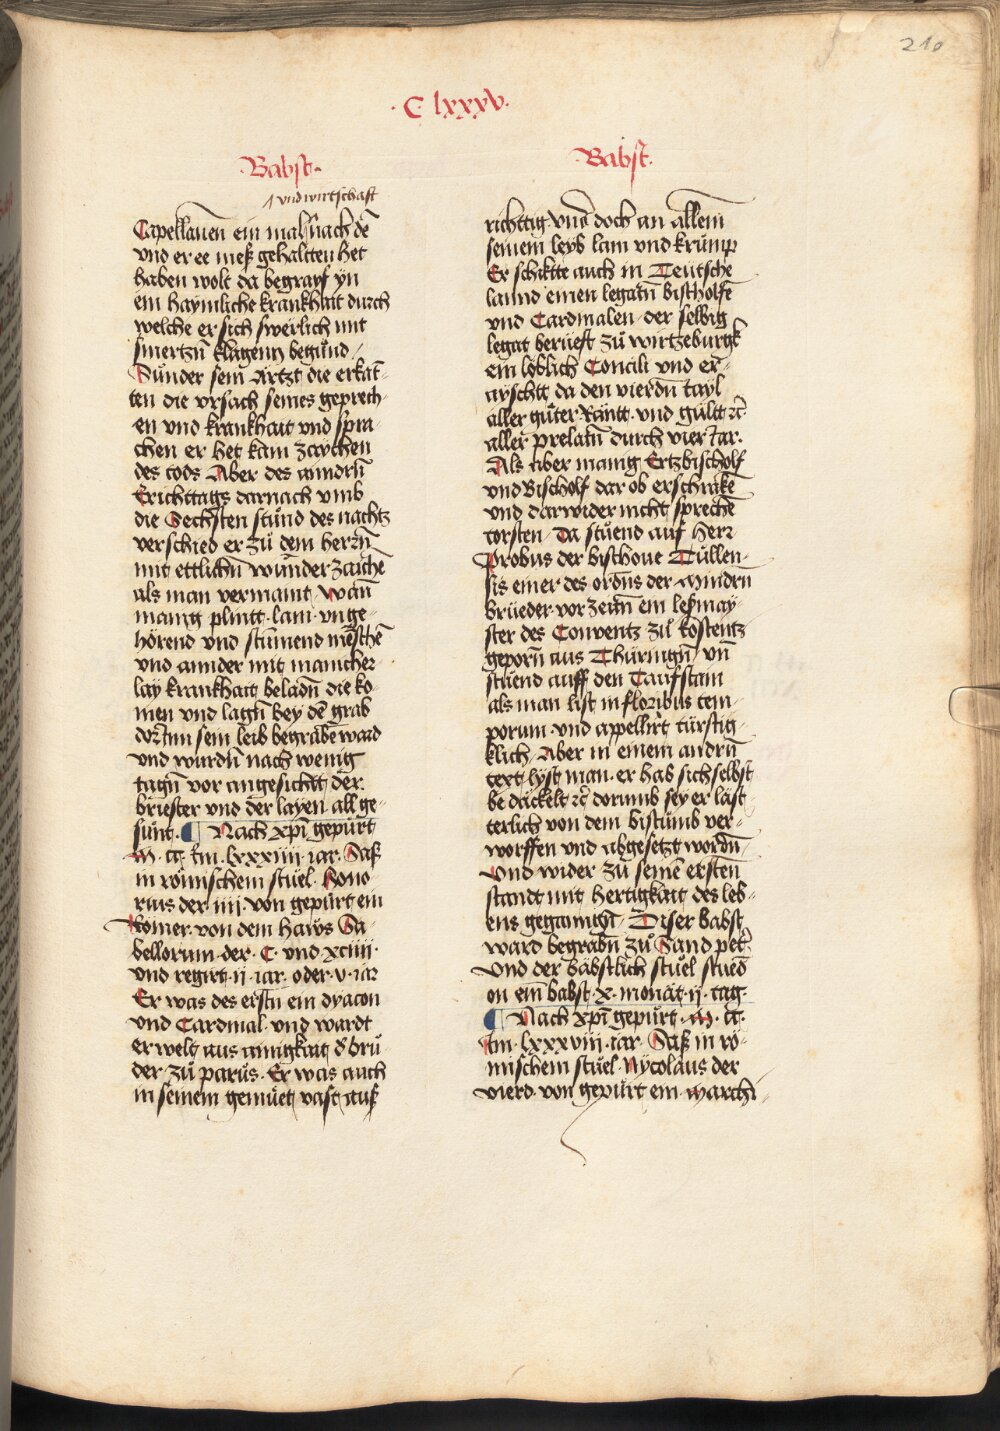 210
· C lxxxv ·
· Babst ·
vnd wirtschaft
Capellanen ein mal nach dē
vnd er ee meß gehaltten het
haben wolt da begrayf yn
ein haymliche krankhait durch
welche er sich swerlich mit
smertzn̄ klagenn begůnd /
Sůnder sein Artzt die erkāt-
ten die vrsach seines geprech-
en vnd krankhait vnd spra-
chen er het kain zaychen
des tods Aber des anndrn̄
Erichttags darnach vmb
die Sechsten stůnd des nachtz
verschied er zů dem herrn̄
mit ettlichn̄ wůnderzaichē
als man vermaint wan̄
manig plintt · lam · vnge-
hörend vnd stůmend mēschē
vnd annder mit manicher-
lay krankhait beladn̄ die ko
men vnd lagn̄ bey dē grab
dorInn sein leib begrabēn ward
vnd wurdn̄ nach wenig
tagn̄ vor angesichtt der
briester vnd der layen all ge-
sůnt · ¶ Nach xp̄i gepůrt
M · cc · Im · lxxxiiii · iar · Saß
in römischem stůel · Hono
rius der · iiii · von gepůrt ein
Römer · von dem haws Sa-
bellorum · der · C · vnd xciiii ·
vnd regirt · ii · iar · oder · v · iar
Er was des erstn̄ ein dyacon
vnd Cardinal · vnd wardt
erwelt aus ainigkait d' brů
der zů parůs · Er was auch
in seinem gemůet vast auf
· Babst ·
richttig vnd doch an allem
seinem leyb lam vnd krůmp
Er schiktte auch in Teůtsche
lannd einen legatn̄ bischolfē
vnd Cardinalen · der selbig
legat berůeft zů wirtzeburgk
ein löblich Concili vnd er-
ayschtt da den vierdn̄ tayl
aller gůter Räntt · vnd gůltt rc̄
aller prelatn̄ durch vier Iar ·
Als aber manig Ertzbischolf
vnd Bischolf dar ob erschrakē
vnd darwider nicht sprechē
torsten · Da stůend auf herr
Probus der bischoue Tůllen-
sis einer des ordns der mindrn̄
Brůeder vor zeitn̄ ein lesmay-
ster des Conventz zů kostentz
geporn̄ aus Thůringn̄ vn̄
stůend auff den Taufstain
als man list in floribus tem-
porum · vnd appellirt tůrstig-
klich / Aber in einem andrn̄
text lyst man · er hab sich selbst
bedäckelt rc̄ dorumb sey er läst-
terlich von dem bistumb ver-
worffen vnd abgesetzt wordn̄
Vnd wider zů seinē ersten
standt mit hertigkait des leb-
ens gegannigt / Diser babst
ward begrabn̄ zů Sand pet'
Vnd der bäbstlich stůel stůed
on ein babst · x · monät · ii · tag ·
¶ Nach xp̄i gepůrt · M · cc ·
Im · lxxxviii · iar · Saß in rö-
mischem stůel · Nycolaus der
vierd · von gepůrt ein · marchi-